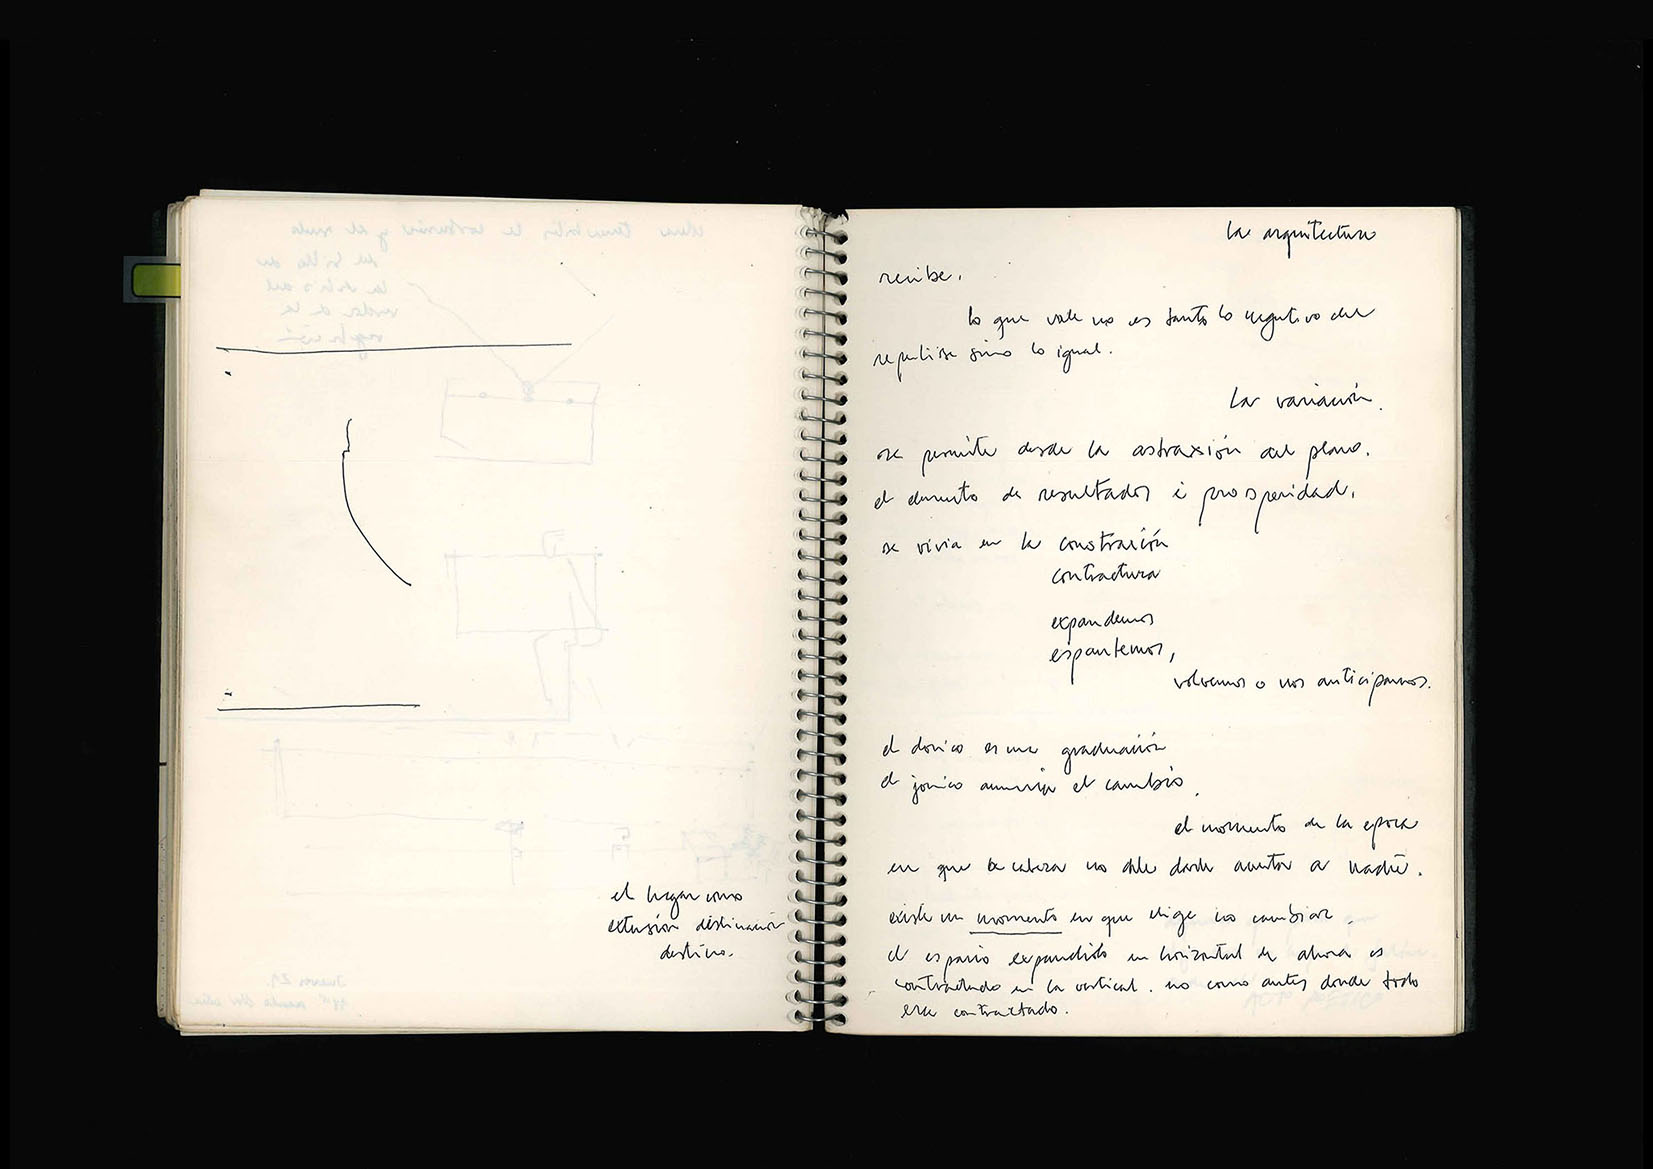 el lugar como
extensión destinación
destino.
la arquitectura
recibe.
lo que vale no es tanto lo negativo del
repetirse sino lo igual.
la variación.
se permite desde la astraxión del plano.
el elemento de resultados i prosperidad.
se vivia en la constraición
contractura
expandemos
espantemos,
volvemos o nos anticipamos.
el dorico es una graduación
el jonico anuncia el cambio.
el momento de la epoca
en que la cabeza no debe a nadie.
existe un momento en que elige no cambiar.
el espacio expandido en horizontal de ahora es
contractado en la vertical. no como antes donde todo
era contractado.